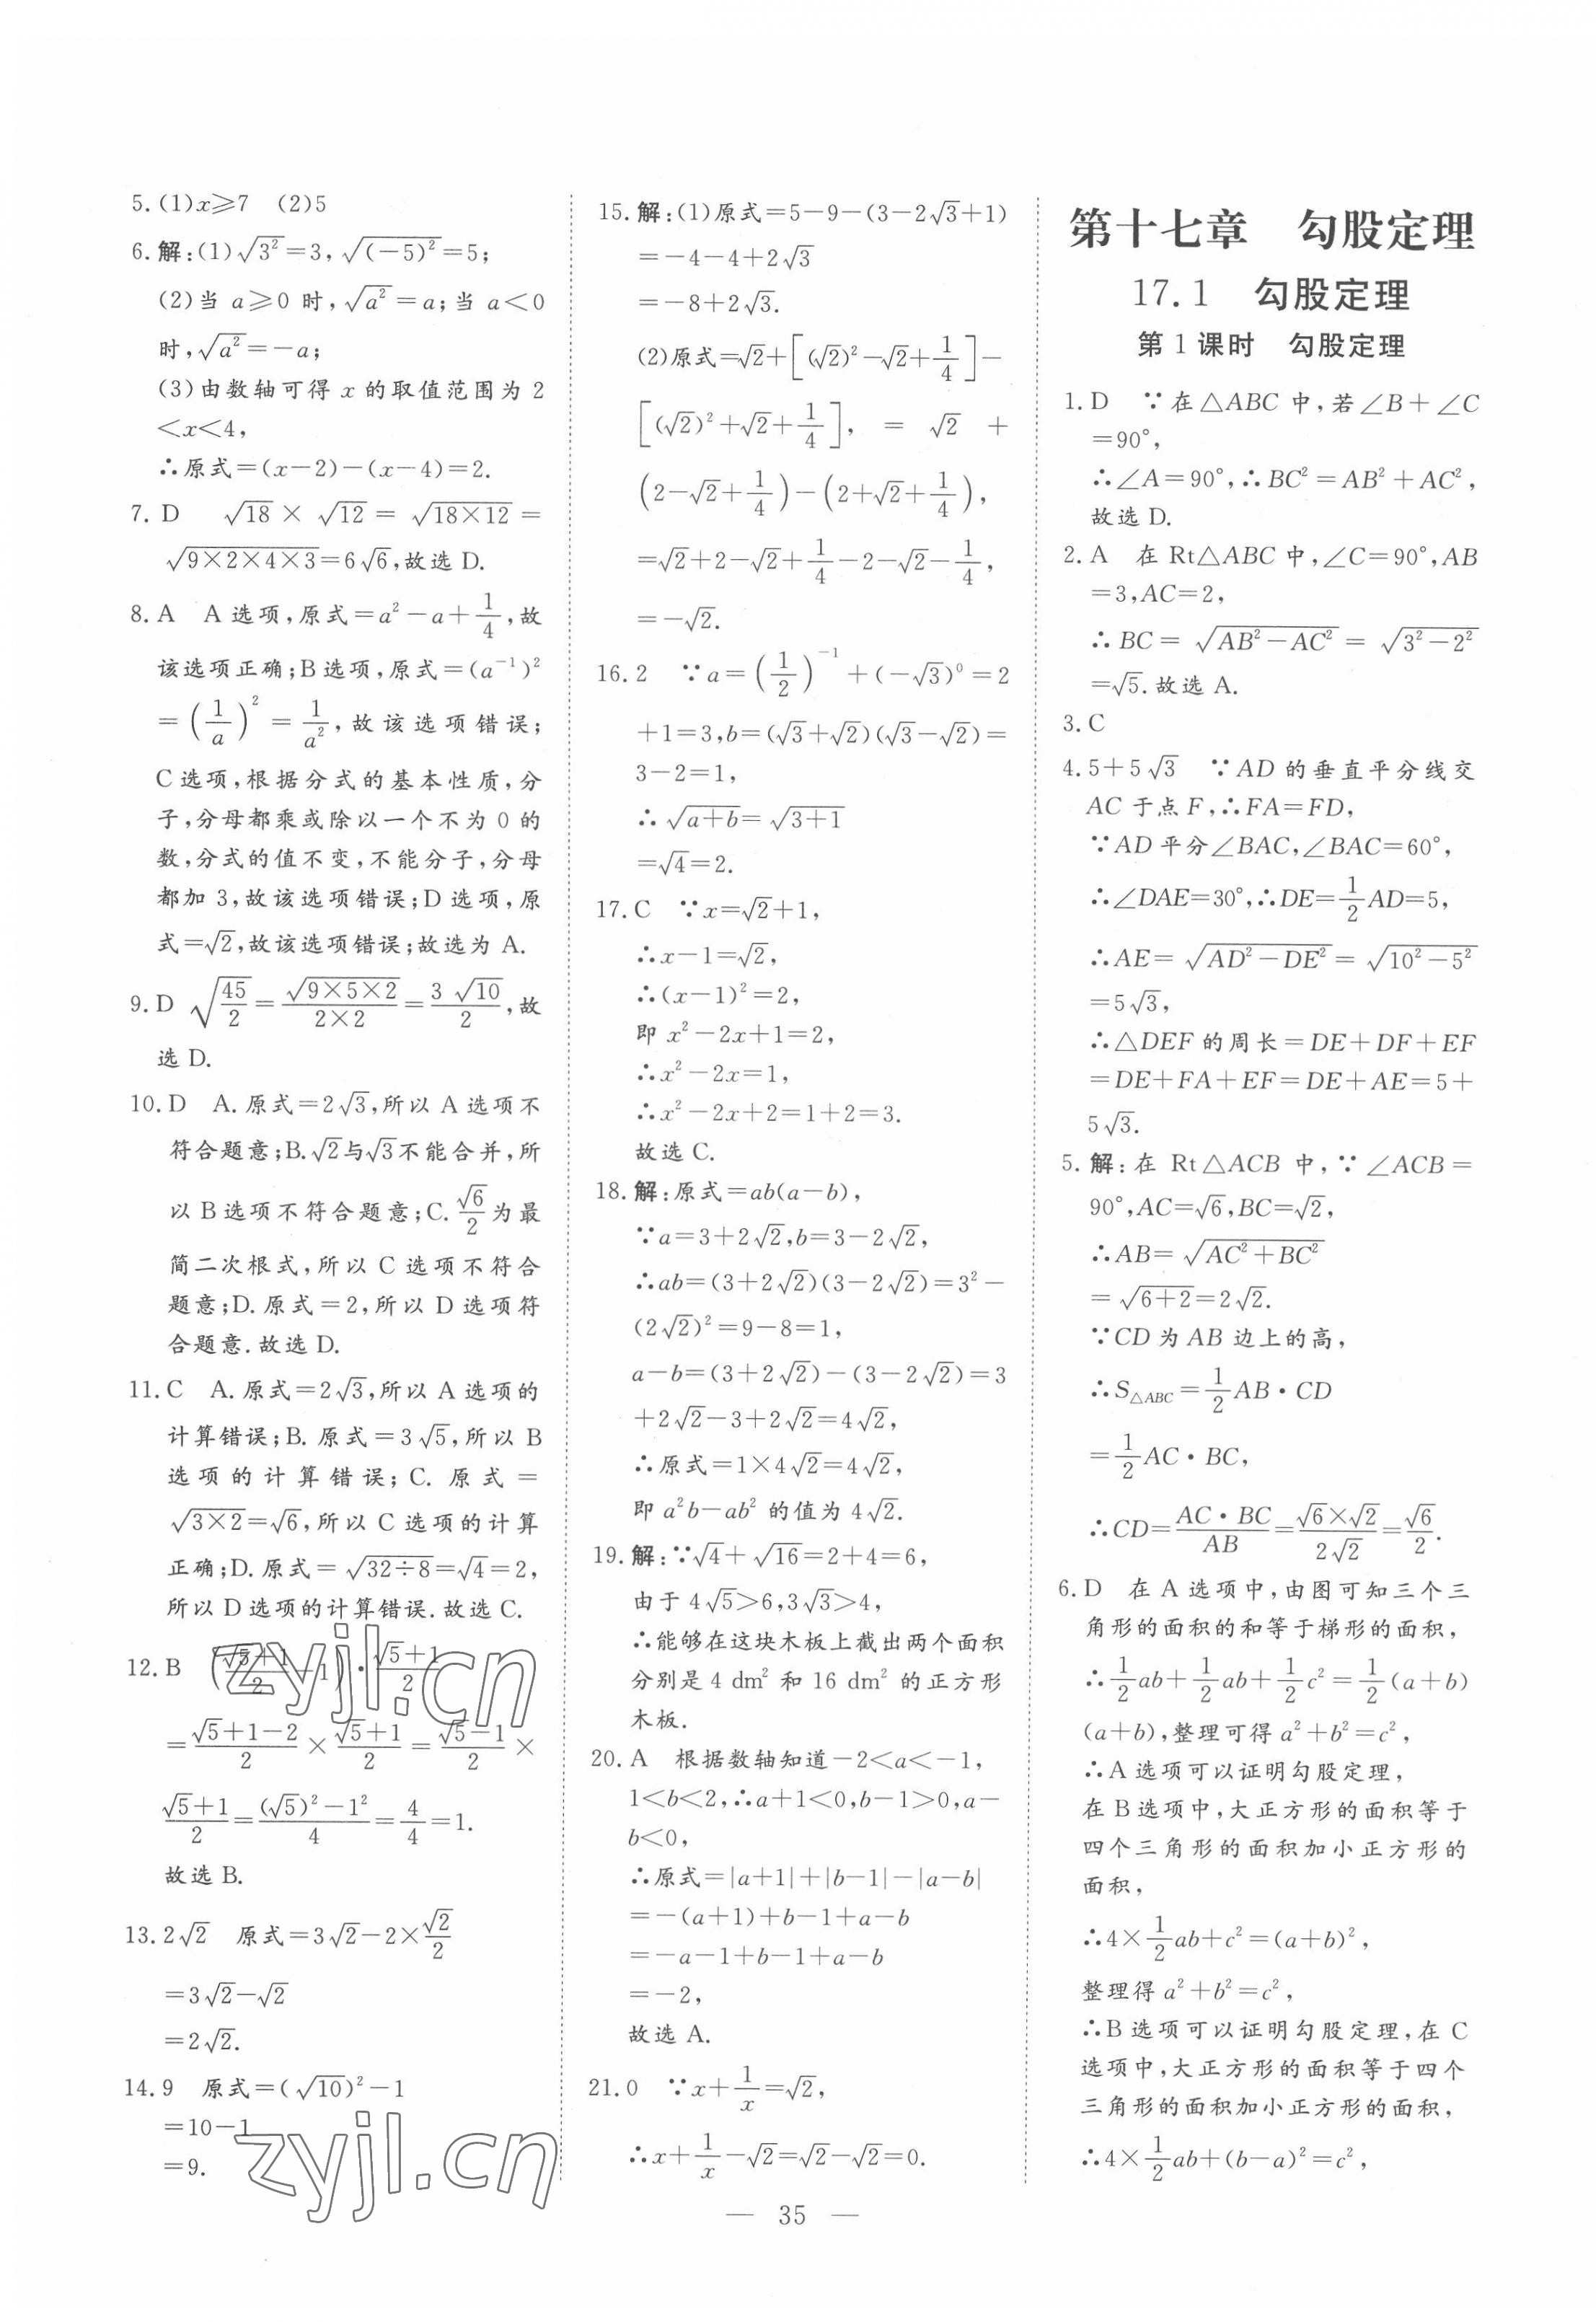 5.(1)x⩾7　(2)5
6.解:(1)√3²=3,√(-5)²=5;
(2)当 a⩾0 时,√a²=a;当 a<0
时,√a²=-a;
(3)由数轴可得 x 的取值范围为 2
<x<4,
∴原式=(x-2)-(x-4)=2.
7. D　√18 × √12 = √(18×12) =
√(9×2×4×3)=6√6,故选 D.
8. A　A 选项,原式=a²-a+1/4,故
该选项正确;B选项,原式=(a⁻¹)²
=(1/a)²=1/a²,故该选项错误;
C选项,根据分式的基本性质,分
子,分母都乘或除以一个不为 0 的
数,分式的值不变,不能分子,分母
都加 3,故该选项错误;D选项,原
式=√2,故该选项错误;故选为 A.
9. D　√(45/2)=√(9×5×2)/(2×2)=3√10/2,故
选 D.
10. D　A. 原式=2√3,所以 A 选项不
符合题意;B.√2与√3不能合并,所
以 B选项不符合题意;C.√6/2为最
简二次根式,所以 C 选项不符合
题意;D. 原式=2,所以 D 选项符
合题意.故选 D.
11. C　A. 原式=2√3,所以 A 选项的
计算错误;B. 原式=3√5,所以 B
选项的计算错误; C. 原式 =
√(3×2)=√6,所以 C 选项的计算
正确;D. 原式=√(32÷8)=√4=2,
所以 D选项的计算错误.故选 C.
12. B　((√5+1)/2-1)·(√5+1)/2
=(√5+1-2)/2×(√5+1)/2=(√5-1)/2×
(√5+1)/2=((√5)²-1²)/4=4/4=1.
故选 B.
13. 2√2　原式=3√2-2×√2/2
=3√2-√2
=2√2.
14. 9　原式=(√10)²-1
=10-1
=9.
zyjl.cn
zyjl.cn
15. 解:(1)原式=5-9-(3-2√3+1)
=-4-4+2√3
=-8+2√3.
(2)原式=√2+[(√2)²-√2+1/4]-
[(√2)²+√2+1/4], = √2 +
(2-√2+1/4)-(2+√2+1/4),
=√2+2-√2+1/4-2-√2-1/4,
=-√2.
16. 2　∵a=(1/2)⁻¹+(-√3)⁰=2
+1=3,b=(√3+√2)(√3-√2)=
3-2=1,
∴√(a+b)=√(3+1)
=√4=2.
17. C　∵x=√2+1,
∴x-1=√2,
∴(x-1)²=2,
即 x²-2x+1=2,
∴x²-2x=1,
∴x²-2x+2=1+2=3.
故选 C.
18. 解:原式=ab(a-b),
∵a=3+2√2,b=3-2√2,
∴ab=(3+2√2)(3-2√2)=3²-
(2√2)²=9-8=1,
a-b=(3+2√2)-(3-2√2)=3
+2√2-3+2√2=4√2,
∴原式=1×4√2=4√2,
即 a²b-ab² 的值为 4√2.
19. 解:∵√4+√16=2+4=6,
由于 4√5>6,3√3>4,
∴能够在这块木板上截出两个面积
分别是 4 dm² 和 16 dm² 的正方形
木板.
20. A　根据数轴知道-2<a<-1,
1<b<2,∴a+1<0,b-1>0,a-
b<0,
∴原式=|a+1|+|b-1|-|a-b|
=-(a+1)+b-1+a-b
=-a-1+b-1+a-b
=-2,
故选 A.
21. 0　∵x+1/x=√2,
∴x+1/x-√2=√2-√2=0.
第十七章　勾股定理
17.1　勾股定理
第 1 课时　勾股定理
1. D　∵在△ABC 中,若∠B+∠C
=90°,
∴∠A=90°,∴BC²=AB²+AC²,
故选 D.
2. A　在 Rt△ABC 中,∠C=90°,AB
=3,AC=2,
∴BC=√(AB²-AC²)=√(3²-2²)
=√5.故选 A.
3. C
4. 5+5√3　∵AD 的垂直平分线交
AC 于点 F,∴FA=FD,
∵AD 平分∠BAC,∠BAC=60°,
∴∠DAE=30°,∴DE=1/2AD=5,
∴AE=√(AD²-DE²)=√(10²-5²)
=5√3,
∴△DEF 的周长=DE+DF+EF
=DE+FA+EF=DE+AE=5+
5√3.
5. 解:在 Rt△ACB 中,∵∠ACB=
90°,AC=√6,BC=√2,
∴AB=√(AC²+BC²)
=√(6+2)=2√2.
∵CD 为 AB 边上的高,
∴S△ABC=1/2AB·CD
=1/2AC·BC,
∴CD=AC·BC/AB=(√6×√2)/(2√2)=√6/2.
6. D　在 A 选项中,由图可知三个三
角形的面积的和等于梯形的面积,
∴1/2ab+1/2ab+1/2c²=1/2(a+b)
(a+b),整理可得 a²+b²=c²,
∴A 选项可以证明勾股定理,
在 B选项中,大正方形的面积等于
四个三角形的面积加小正方形的
面积,
∴4×1/2ab+c²=(a+b)²,
整理得 a²+b²=c²,
∴B 选项可以证明勾股定理,在 C
选项中,大正方形的面积等于四个
三角形的面积加小正方形的面积,
∴4×1/2ab+(b-a)²=c²,
— 35 —